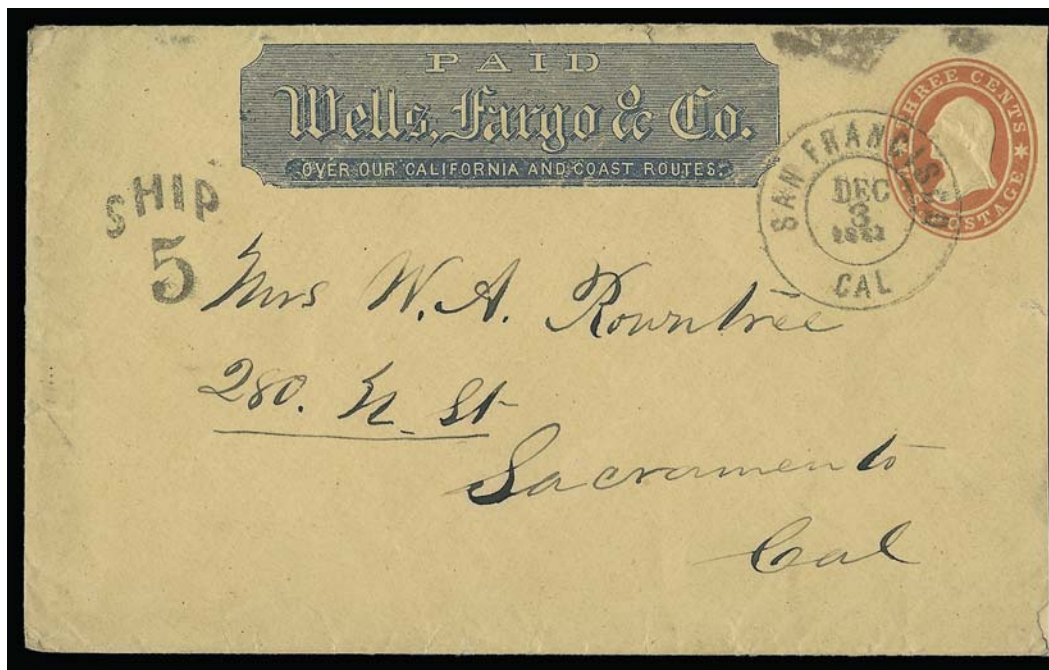 PAID
Wells, Fargo & Co.
OVER OUR CALIFORNIA AND COAST ROUTES.
THREE CENTS
U.S. POSTAGE
SAN FRANCISCO
DEC
3
CAL
SHIP
5
Mrs W. A. Rowntree
280. N. St
Sacramento
Cal